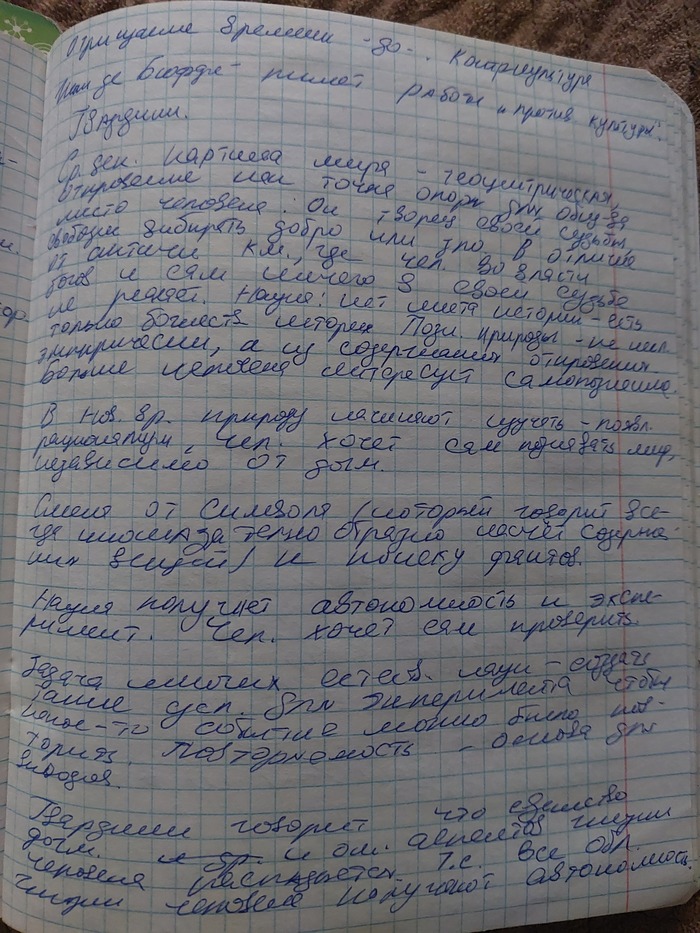 Отрицание времени - до- . Контркультура
пишет работы "против культуры".
Гвардини.
Ср. век. картина мира - геоцентрическая,
откровение как точка опоры для
место человека: Он творец своей судьбы,
свободен выбирать добро или зло в отличие
от антич. к.м., где чел. во власти
богов и сам ничего в своей судьбе
не решает. Наука: нет истории - есть
только божеств. история. Позн. природы - не
эмпирически, а из содержания откровения.
Больше человека интересует самопознание.
В Нов. вр. природу начинают изучать - появл.
рационализм, чел. хочет сам познавать мир,
независимо от догм.
Смена от символа (который говорит все-
гда иносказательно образно насчёт содержа-
ния вещей) к поиску фактов.
Наука получает автономность и экспе-
римент. Чел. хочет сам проверить.
Задача многих естеств. наук - создать
такие усл. для эксперимента чтобы
какое-то событие можно было пов-
торить. Повторяемость - основа для
выводов.
Гвардини говорит что единство
догм. и аспектов жизни
человека распадается. Т.е. все обл.
жизни человека получают автономность.